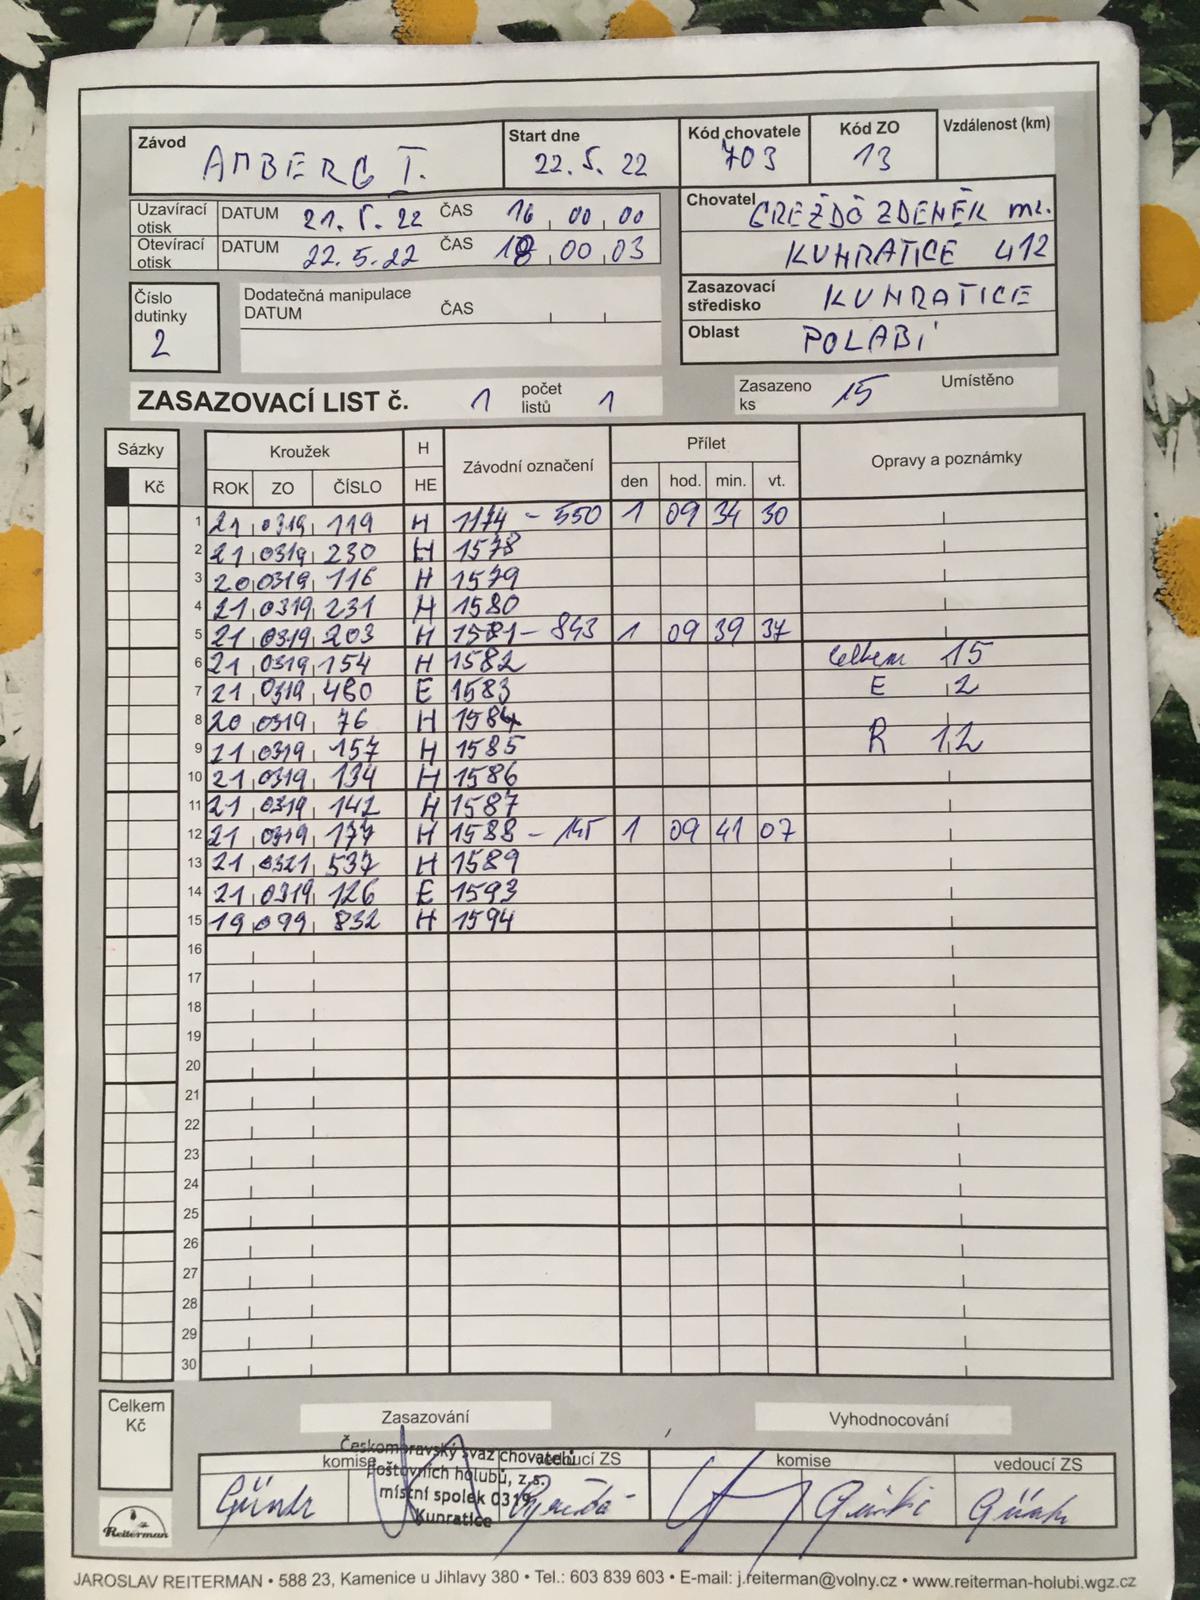 Závod AMBERG I. Start dne 22.5.22 Kód chovatele 703 Kód ZO 13 Vzdálenost (km)
Uzavírací otisk DATUM 21.5.22 ČAS 16 00 00
Otevírací otisk DATUM 22.5.22 ČAS 18 00 03
Chovatel GREŽDO ZDENĚK ml.
KUNRATICE 412
Číslo dutinky 2
Dodatečná manipulace
DATUM ČAS
Zasazovací středisko KUNRATICE
Oblast POLABÍ
ZASAZOVACÍ LIST č. 1 počet listů 1 Zasazeno ks 15 Umístěno
Sázky Kroužek H Závodní označení Přílet Opravy a poznámky
Kč ROK ZO ČÍSLO HE den hod. min. vt.
1 21 0319 119 H 1174 - 550 1 09 34 30
2 21 0319 230 H 1578
3 20 0319 116 H 1579
4 21 0319 231 H 1580
5 21 0319 203 H 1581 - 843 1 09 39 37
6 21 0319 154 H 1582 Celkem 15
7 21 0319 460 E 1583 E 2
8 20 0319 76 H 1584
9 21 0319 157 H 1585 R 12
10 21 0319 134 H 1586
11 21 0319 142 H 1587
12 21 0319 177 H 1588 - 145 1 09 41 07
13 21 0321 537 H 1589
14 21 0319 126 E 1593
15 19 099 832 H 1594
16
17
18
19
20
21
22
23
24
25
26
27
28
29
30
Celkem Kč
Zasazování Vyhodnocování
komise vedoucí ZS komise vedoucí ZS
Českomoravský svaz chovatelů
Poštovních holubů, z.s.
místní spolek 0319
Kunratice
Reiterman
JAROSLAV REITERMAN • 588 23, Kamenice u Jihlavy 380 • Tel.: 603 839 603 • E-mail: j.reiterman@volny.cz • www.reiterman-holubi.wgz.cz